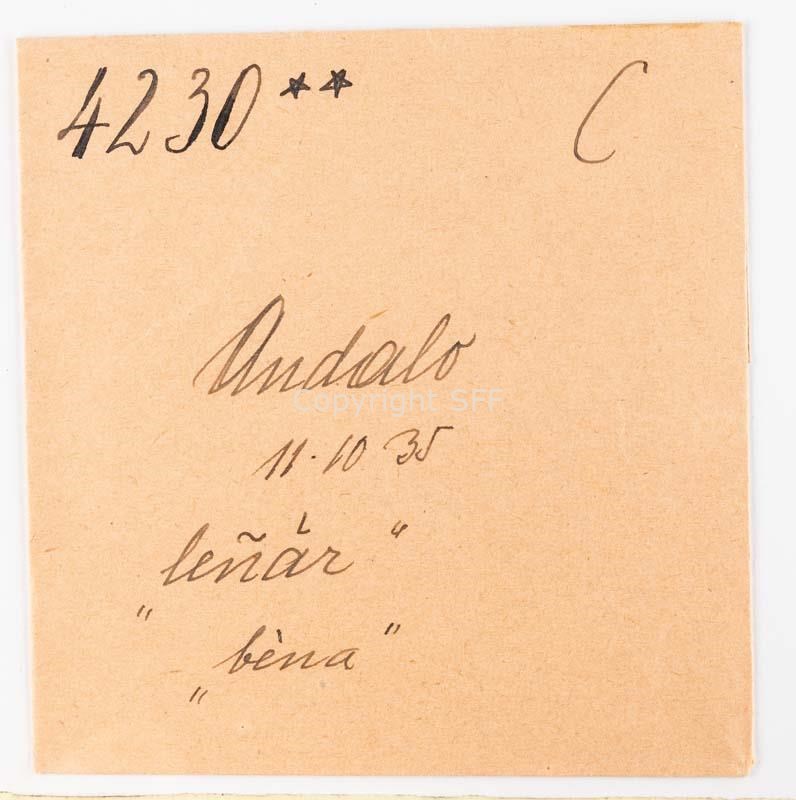 4230** C
Andalo
Copyright SFF
11·10 35
„leñár“
„bèna“